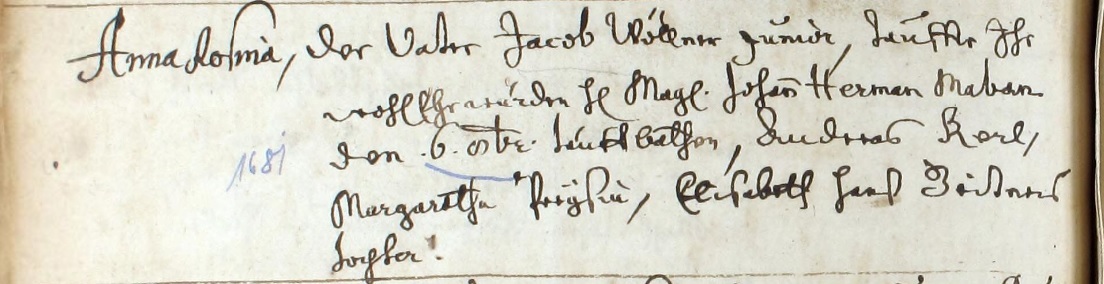 Anna Rosina, der Vater Jacob Wöllner junior, tauffte Ihr
wohl Ehrwürden H. Magl. Johan Herman Maban
1681 den .6. 8br. tauffbathen, Andreas Korl,
Margaretha Preÿsin, Elisabeth Hanß Zeidners
tochter.